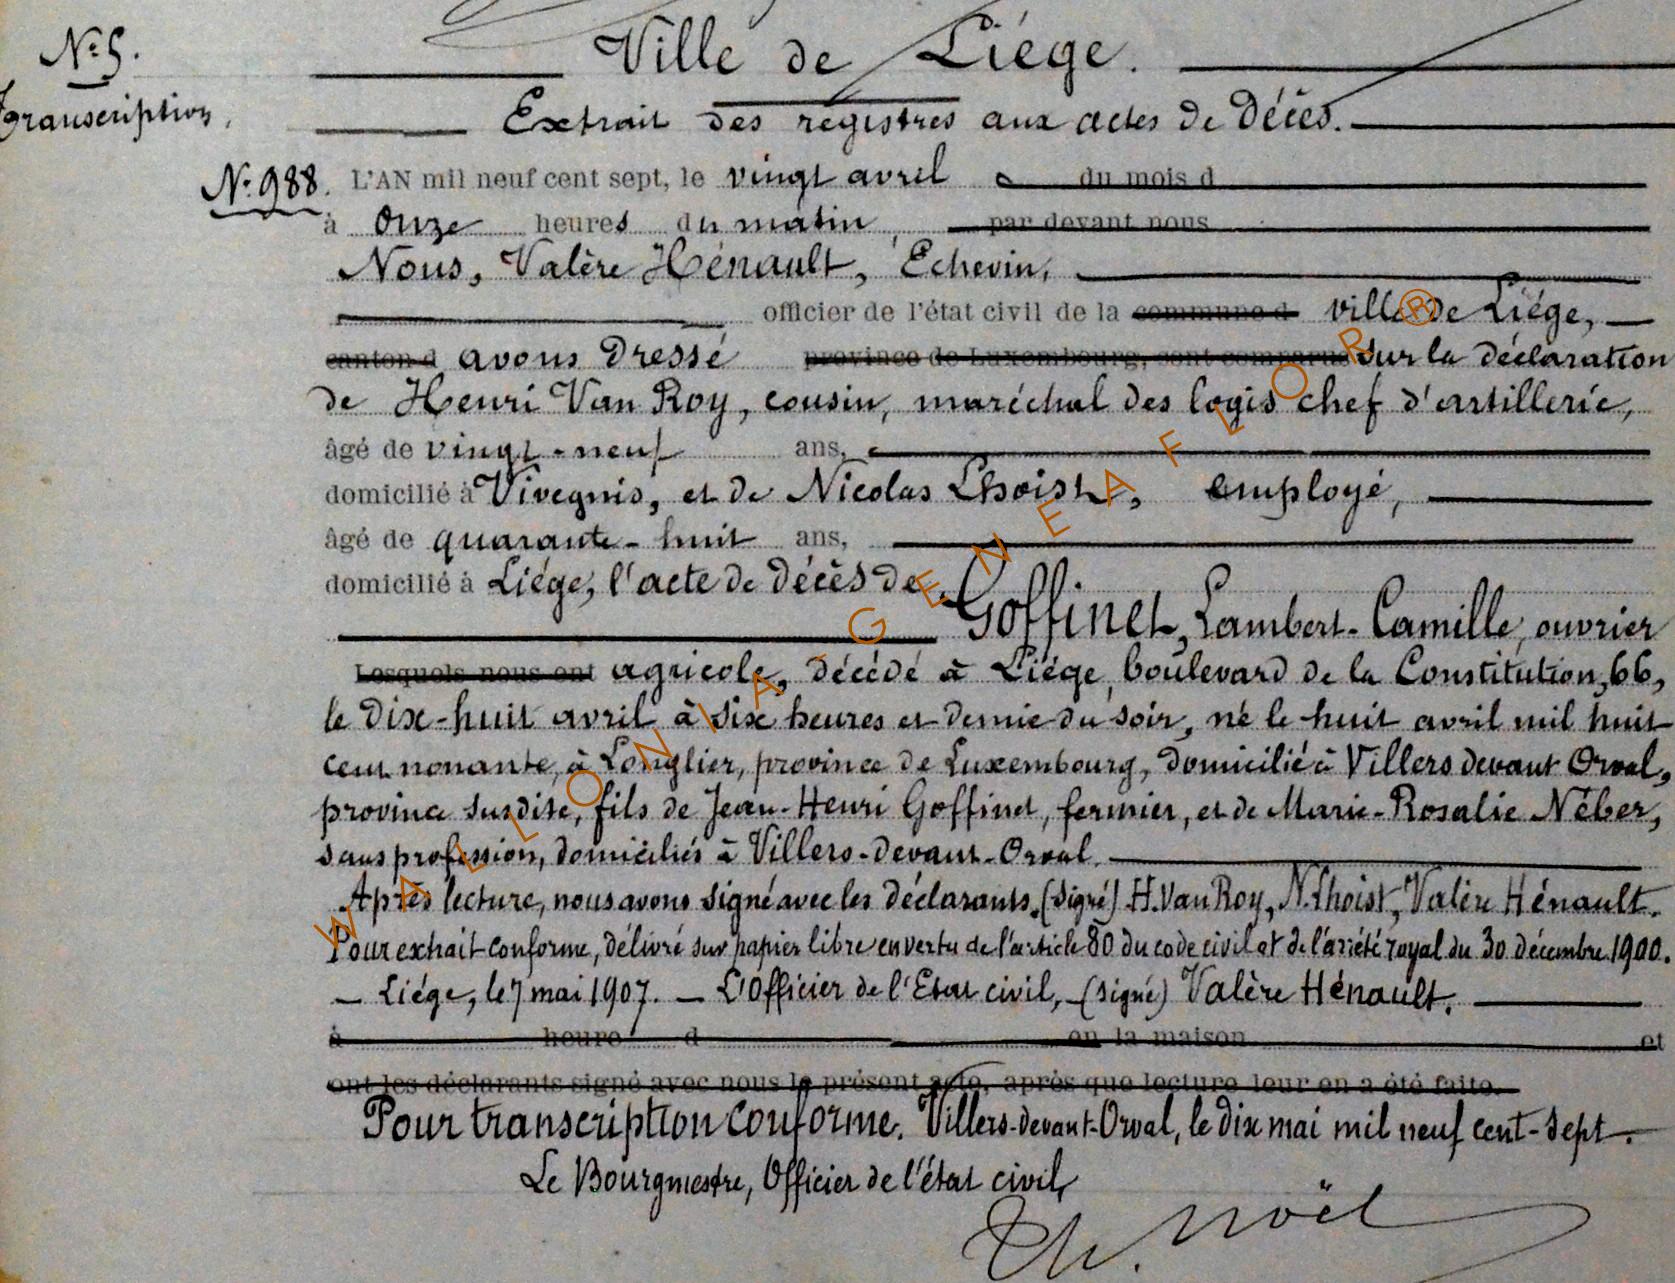 N° 5.
Ville de Liége.
Transcription.
Extrait des registres aux actes de décès.
N° 988. L'AN mil neuf cent sept, le vingt avril du mois d
à onze heures du matin par devant nous
Nous, Valère Hénault, Echevin,
officier de l'état civil de la commune d ville de Liége,
canton d avons dressé province de Luxembourg, sont comparus sur la déclaration
de Henri Van Roy, cousin, maréchal des logis chef d'artillerie,
âgé de vingt-neuf ans,
domicilié à Vivegnis, et de Nicolas Lhoist, employé,
âgé de quarante-huit ans,
domicilié à Liége, l'acte de décès de
Goffinet, Lambert-Camille, ouvrier
Lesquels nous ont agricole, décédé à Liége, boulevard de la Constitution, 66,
le dix-huit avril à six heures et demie du soir, né le huit avril mil huit
cent nonante, à Longlier, province de Luxembourg, domicilié à Villers devant Orval,
province susdite, fils de Jean-Henri Goffinet, fermier, et de Marie-Rosalie Néber,
sans profession, domiciliés à Villers-devant-Orval.
Après lecture, nous avons signé avec les déclarants. (signé) H. Van Roy, N. Lhoist, Valère Hénault.
Pour extrait conforme, délivré sur papier libre en vertu de l'article 80 du code civil et de l'arrêté royal du 30 décembre 1900.
— Liége, le 7 mai 1907. — L'Officier de l'Etat civil, (signé) Valère Hénault.
à heure d en la maison et
ont les déclarants signé avec nous le présent acte, après que lecture leur en a été faite.
Pour transcription conforme. Villers-devant-Orval, le dix mai mil neuf cent-sept.
Le Bourgmestre, Officier de l'état civil,
Ch. Noël
WALLONIA - GENEAFLOR ®